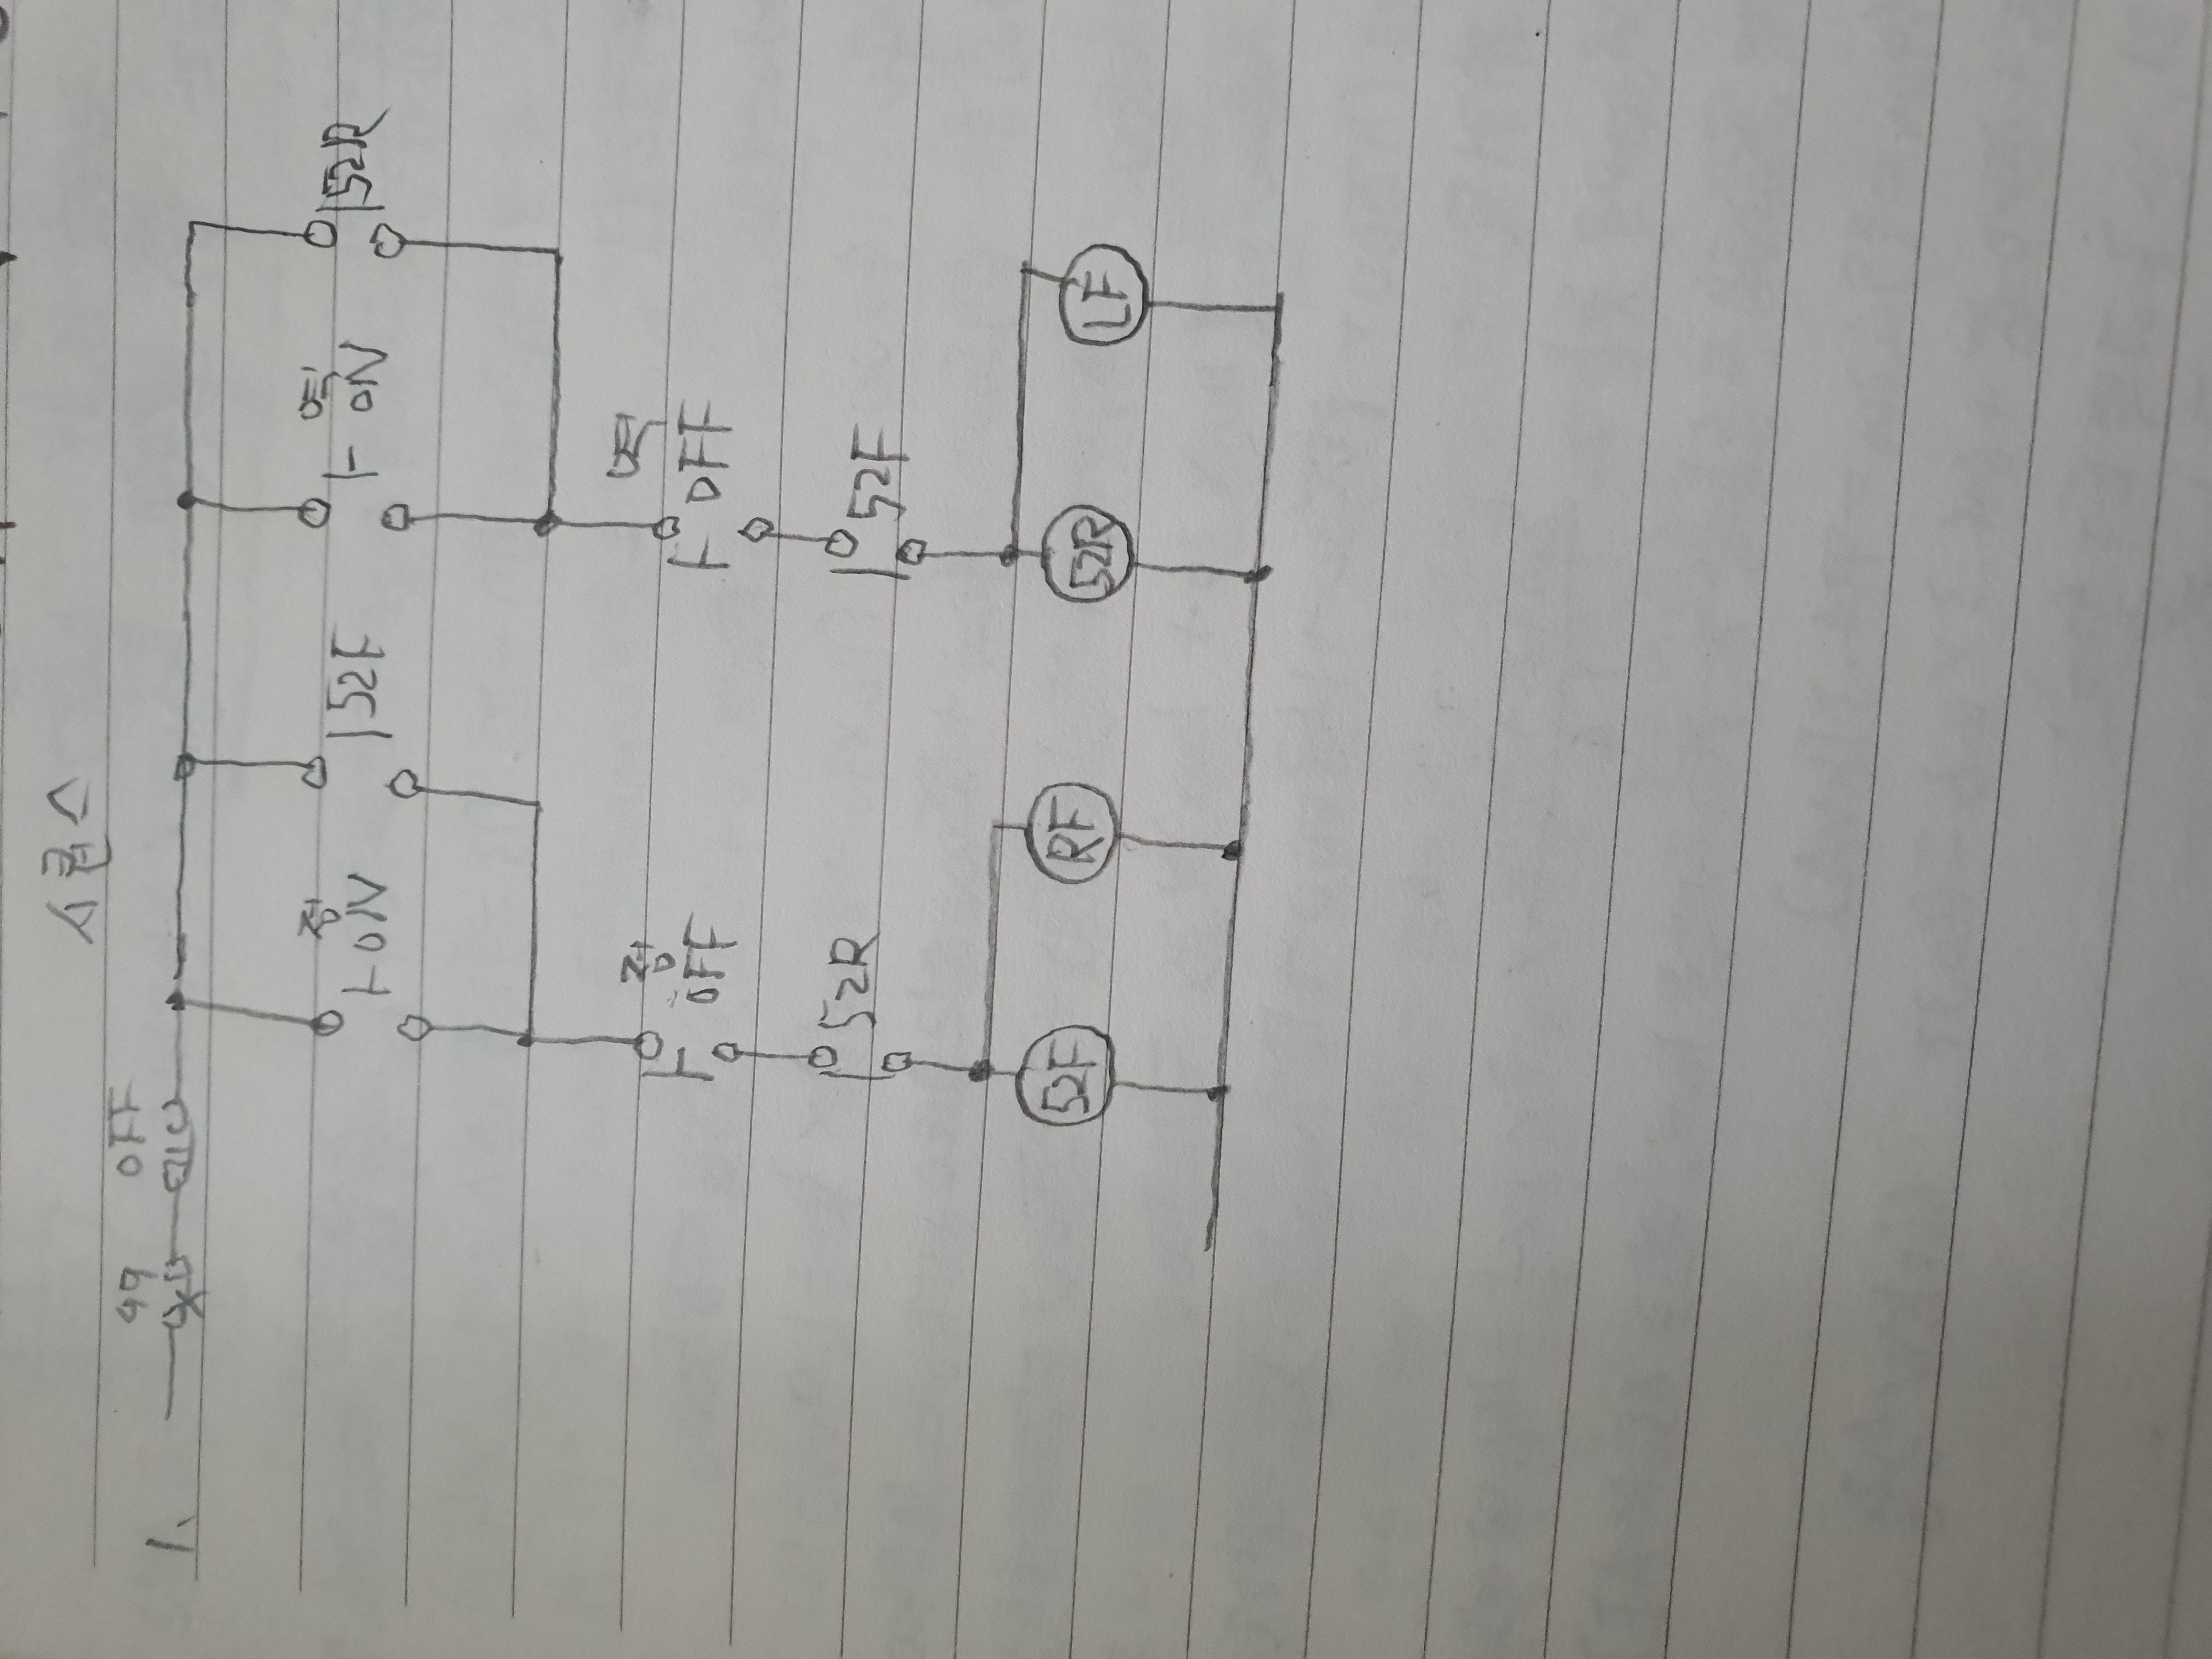 시퀀스
1. 49 OFF
정 ON 52F 역 ON 52R
정 OFF 역 OFF
52R 52F
52F RF 52R LF